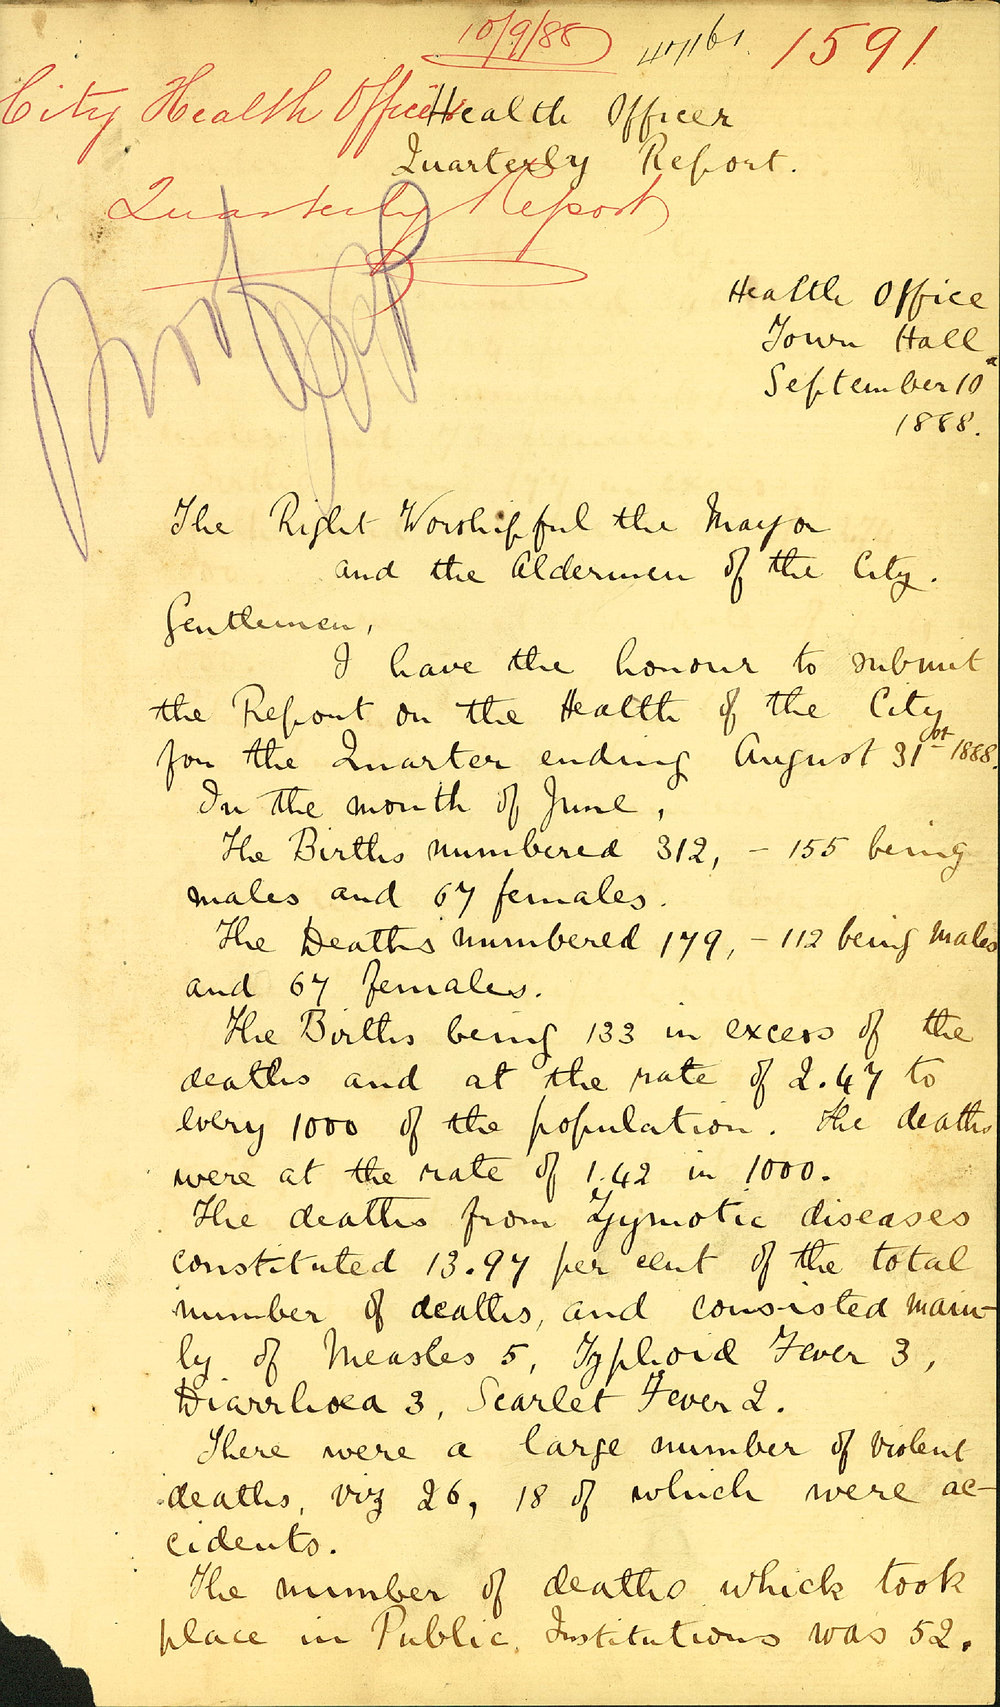 10/9/88 1591
City Health Officer
Health Officer
Quarterly Report.
Quarterly Report
Health Office
Town Hall
September 10
1888.
The Right Worshipful the Mayor
and the Aldermen of the City.
Gentlemen,
I have the honour to submit
the Report on the Health of the City
for the Quarter ending August 31st 1888.
In the month of June,
The Births numbered 312, - 155 being
males and 67 females.
The Deaths numbered 179, - 112 being males
and 67 females.
The Births being 133 in excess of the
deaths and at the rate of 2.47 to
every 1000 of the population. The deaths
were at the rate of 1.42 in 1000.
The deaths from Zymotic diseases
constituted 13.97 per cent of the total
number of deaths, and consisted main-
ly of Measles 5, Typhoid Fever 3,
Diarrhoea 3, Scarlet Fever 2.
There were a large number of violent
deaths, viz 26, 18 of which were ac-
cidents.
The number of deaths which took
place in Public Institutions was 52.